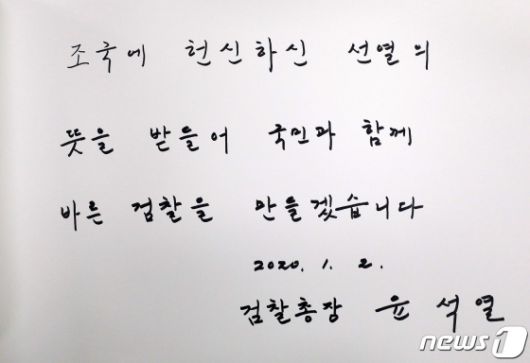 조국에 헌신하신 선열의
뜻을 받들어 국민과 함께
바른 검찰을 만들겠습니다
2020. 1. 2.
검찰총장 윤석열
news1